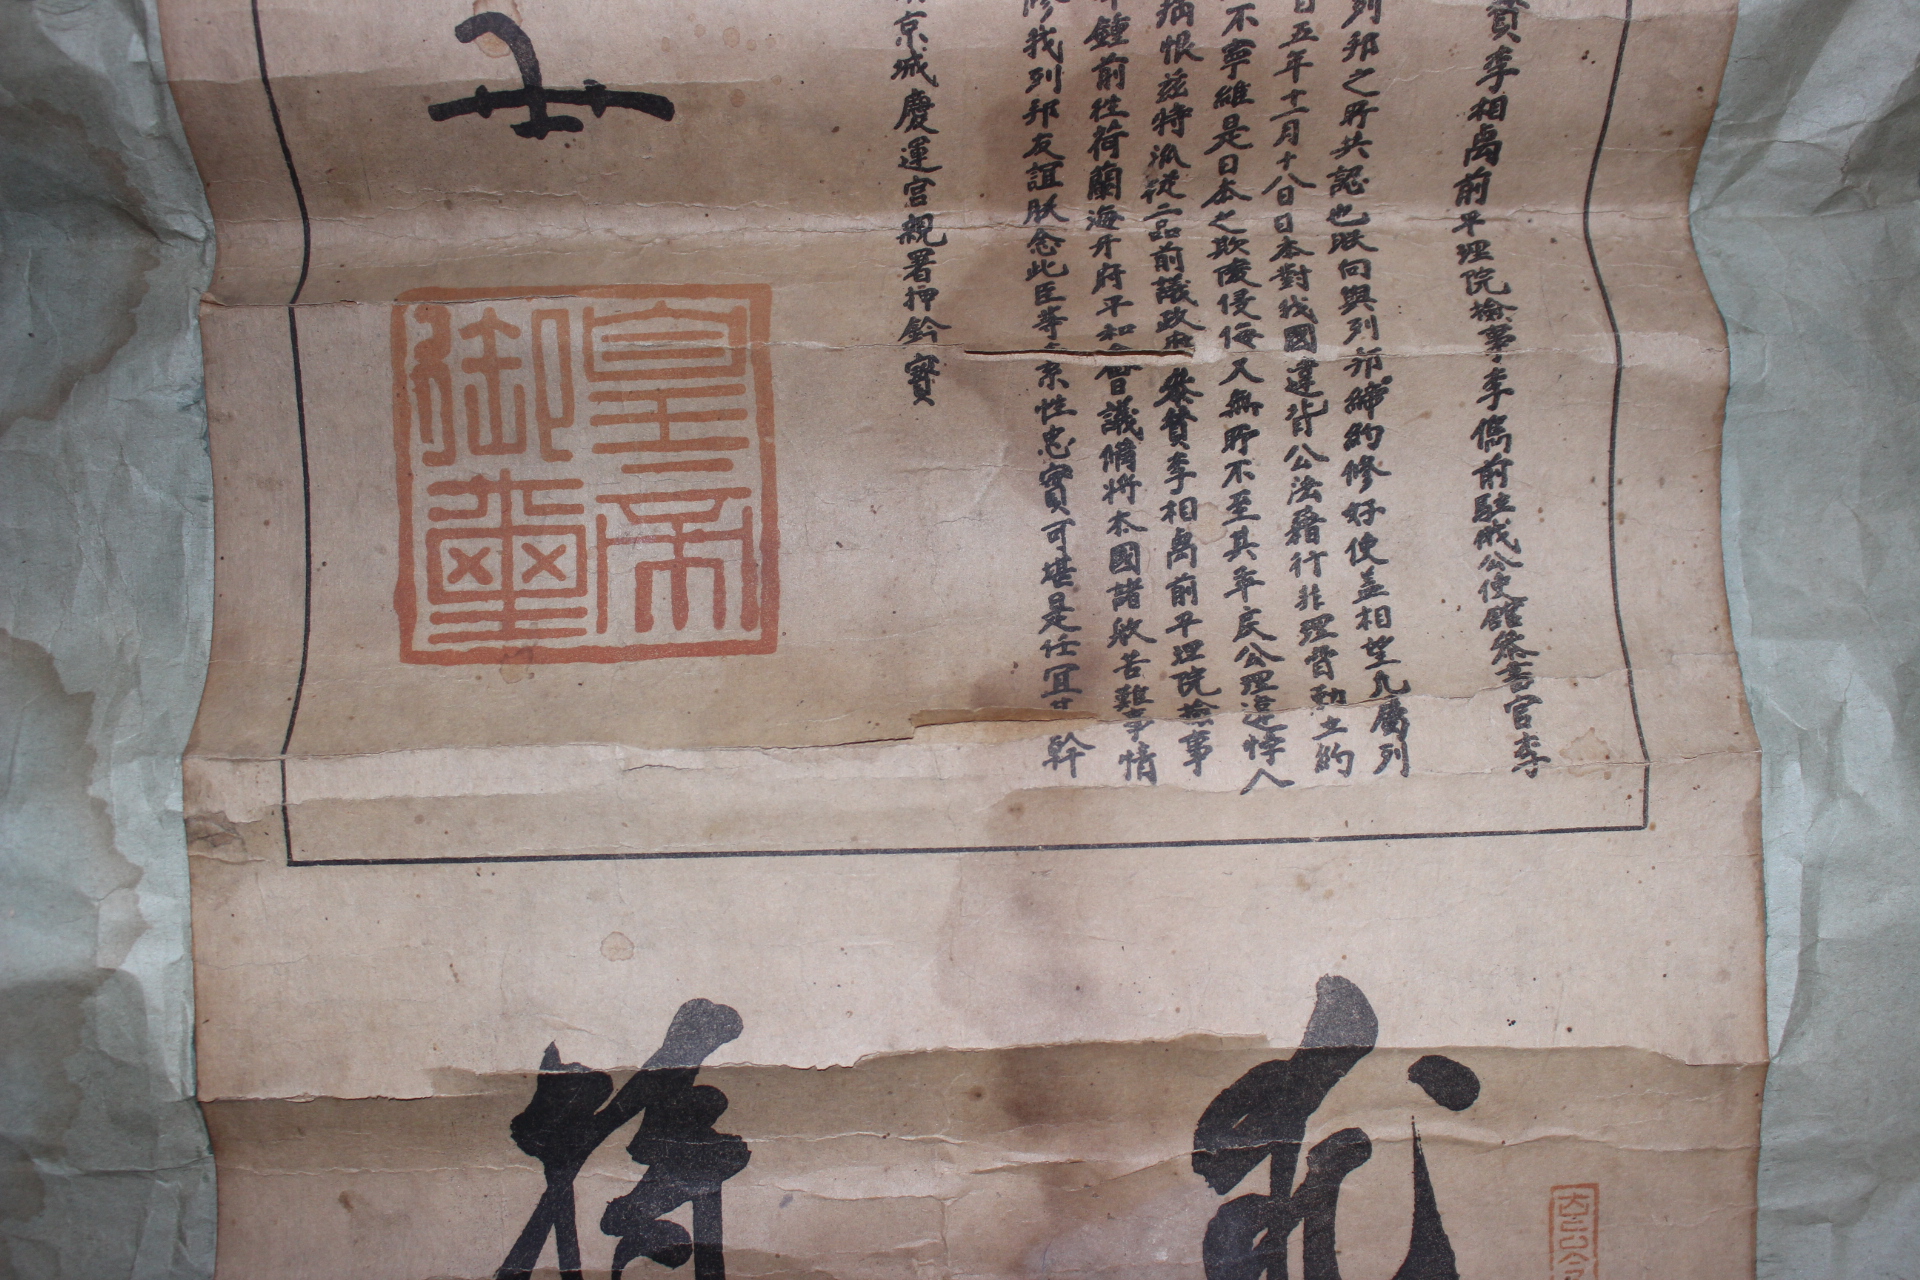 賛李相卨前平理院檢事李儁前駐俄公使館參書官李
列邦之所共認也朕向與列邦締約修好使盖相望凡屬列
日五年十一月十八日日本對我國違背公法藉行非理脅勒立約
不寧維是日本之欺陵侵侮又無所不至其率戾公理違悖人
病恨茲特派從二品前議政府參贊李相卨前平理院檢事
鍾前往荷蘭海牙府平和會議備將本國諸般苦難事情
修我列邦友誼朕念此臣等素性忠實可堪是任宜 幹
京城慶運宮親署押鈐寶
皇帝
御璽